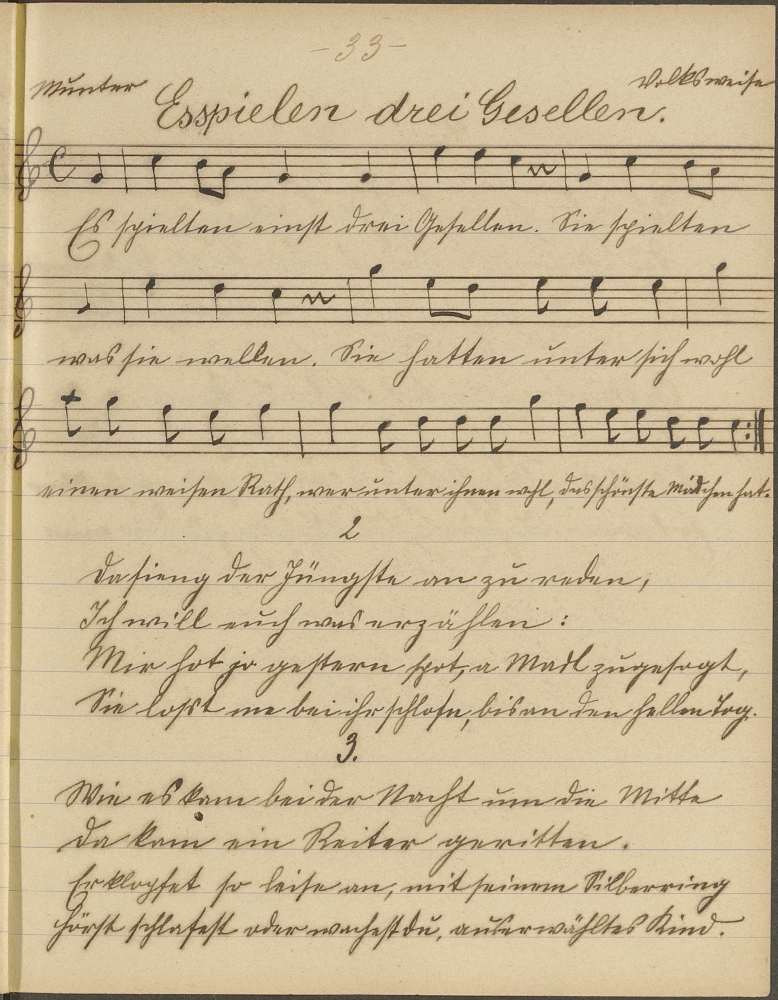 - 33 -
Munter
Volksweise
Esspielen drei Gesellen.
Es spielten einst drei Gesellen. Sie spielten
was sie wellen. Sie hatten unter sich wohl
einen weisen Rath, wer unter ihnen wohl, das schönste Mädchen hat.
2
Da fieng der Jüngste an zu reden,
Ich will euch was erzählen:
Mir hot jo gestern spot, a Madl zugesogt,
Sie losst me bei ihr schlofn, bis an den hellen Tog.
3.
Wie es kam bei der Nacht um die Mitte
da kam ein Reiter geritten.
Er klopfet so leise an, mit seinem Silberring
hörst schlafest oder wachest du, auserwähltes Kind.